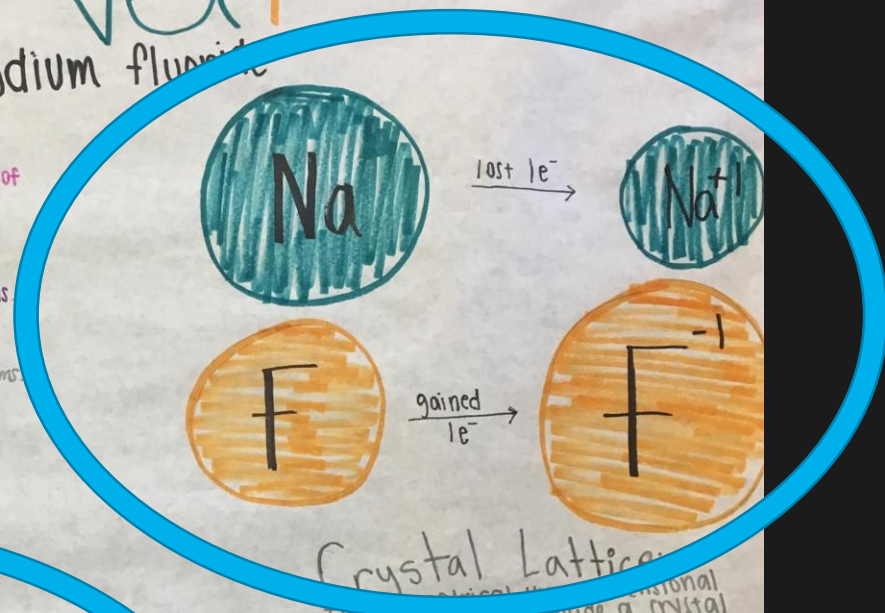 fluoride
of
Na
lost 1e⁻
Na⁺¹
F
gained
1e⁻
F⁻¹
Crystal Lattice